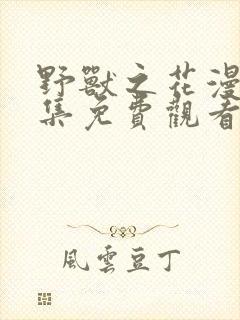 野獸之花漫
集免費觀看
風雲豆丁